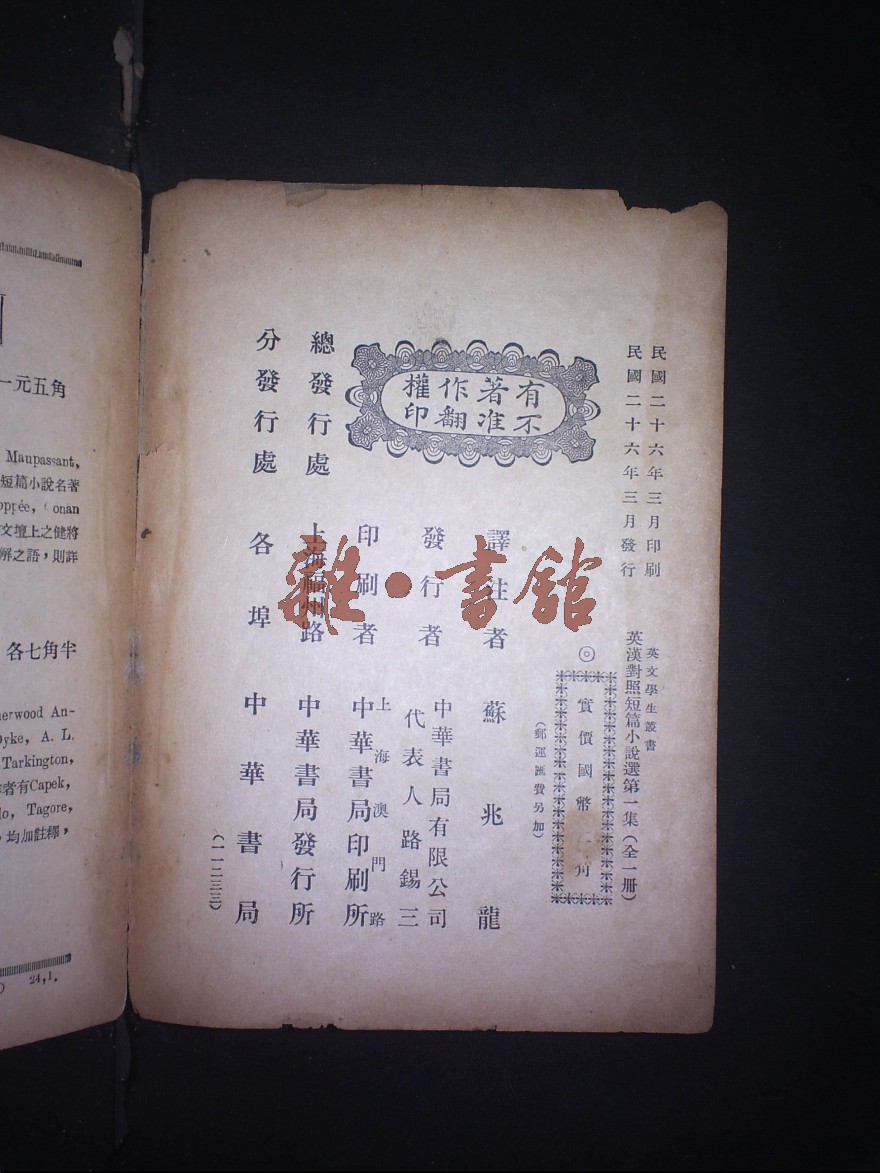 民國二十六年三月印刷
民國二十六年三月發行
英文學生叢書
英漢對照短篇小說選第一集(全一册)
◎實價國幣 角
(郵運匯費另加)
有著作權
不准翻印
譯注者 蘇兆龍
發行者 中華書局有限公司
代表人路錫三
印刷者 上海澳門路
中華書局印刷所
總發行處 上海福州路 中華書局發行所
分發行處 各埠 中華書局
(一一二三三)
雜·書館
一元五角
Maupassant,
短篇小說名著
onan
文壇上之健將
解之語,則詳
各七角半
An-
Dyke, A. L.
Tarkington,
者有Capek,
Tagore,
,均加註釋,
24,1.